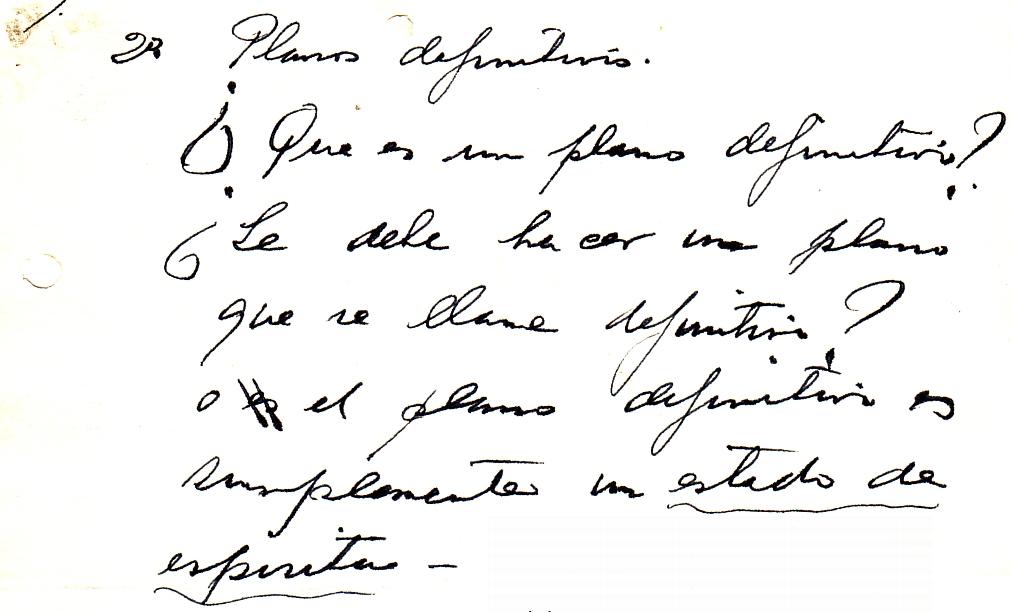 2º Planos definitivos.
¿Que es un plano definitivo?
¿Se debe hacer un plano
que se llame definitivo?
o es el plano definitivo es
simplemente un estado de
espiritu -